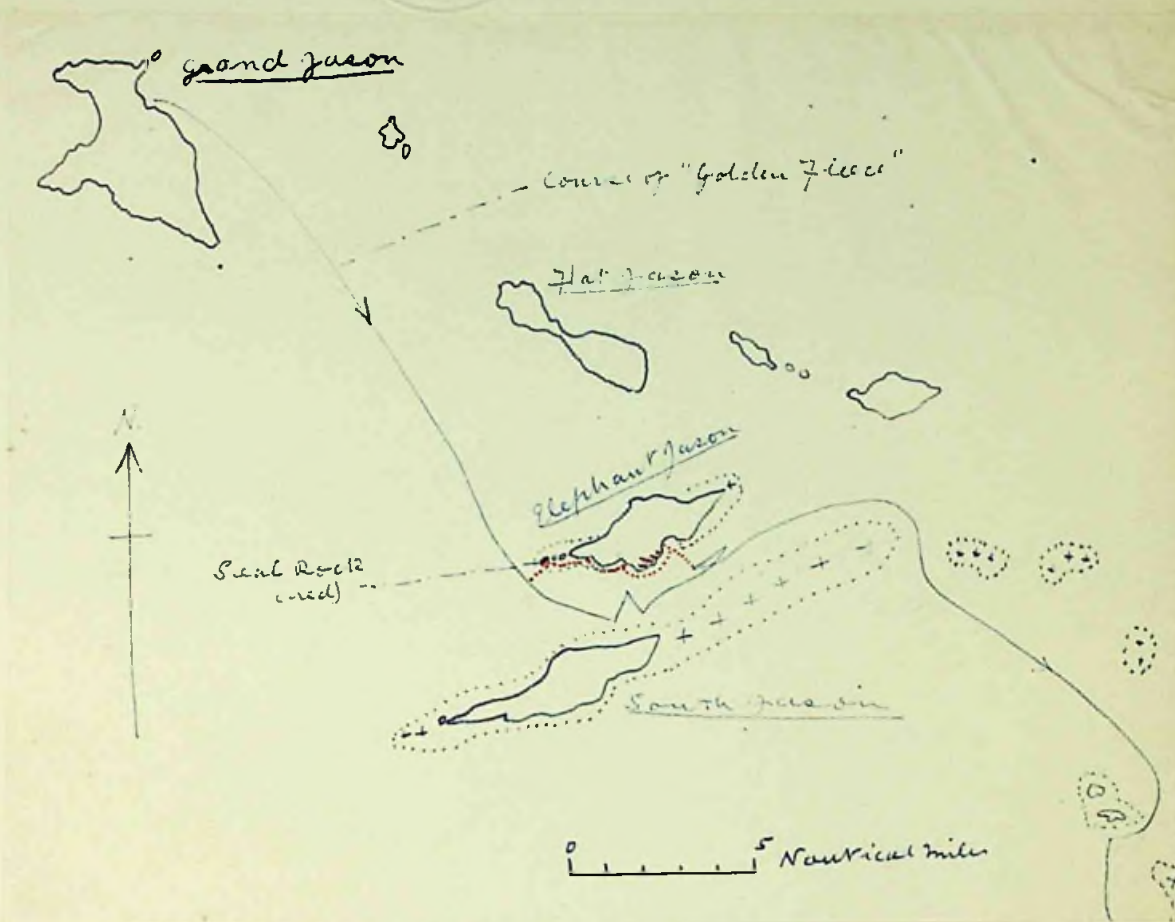 Grand Jason
Course of "Golden Fleece"
Flat Jason
N.
Elephant Jason
Seal Rock
(red)
South Jason
0 5 Nautical miles